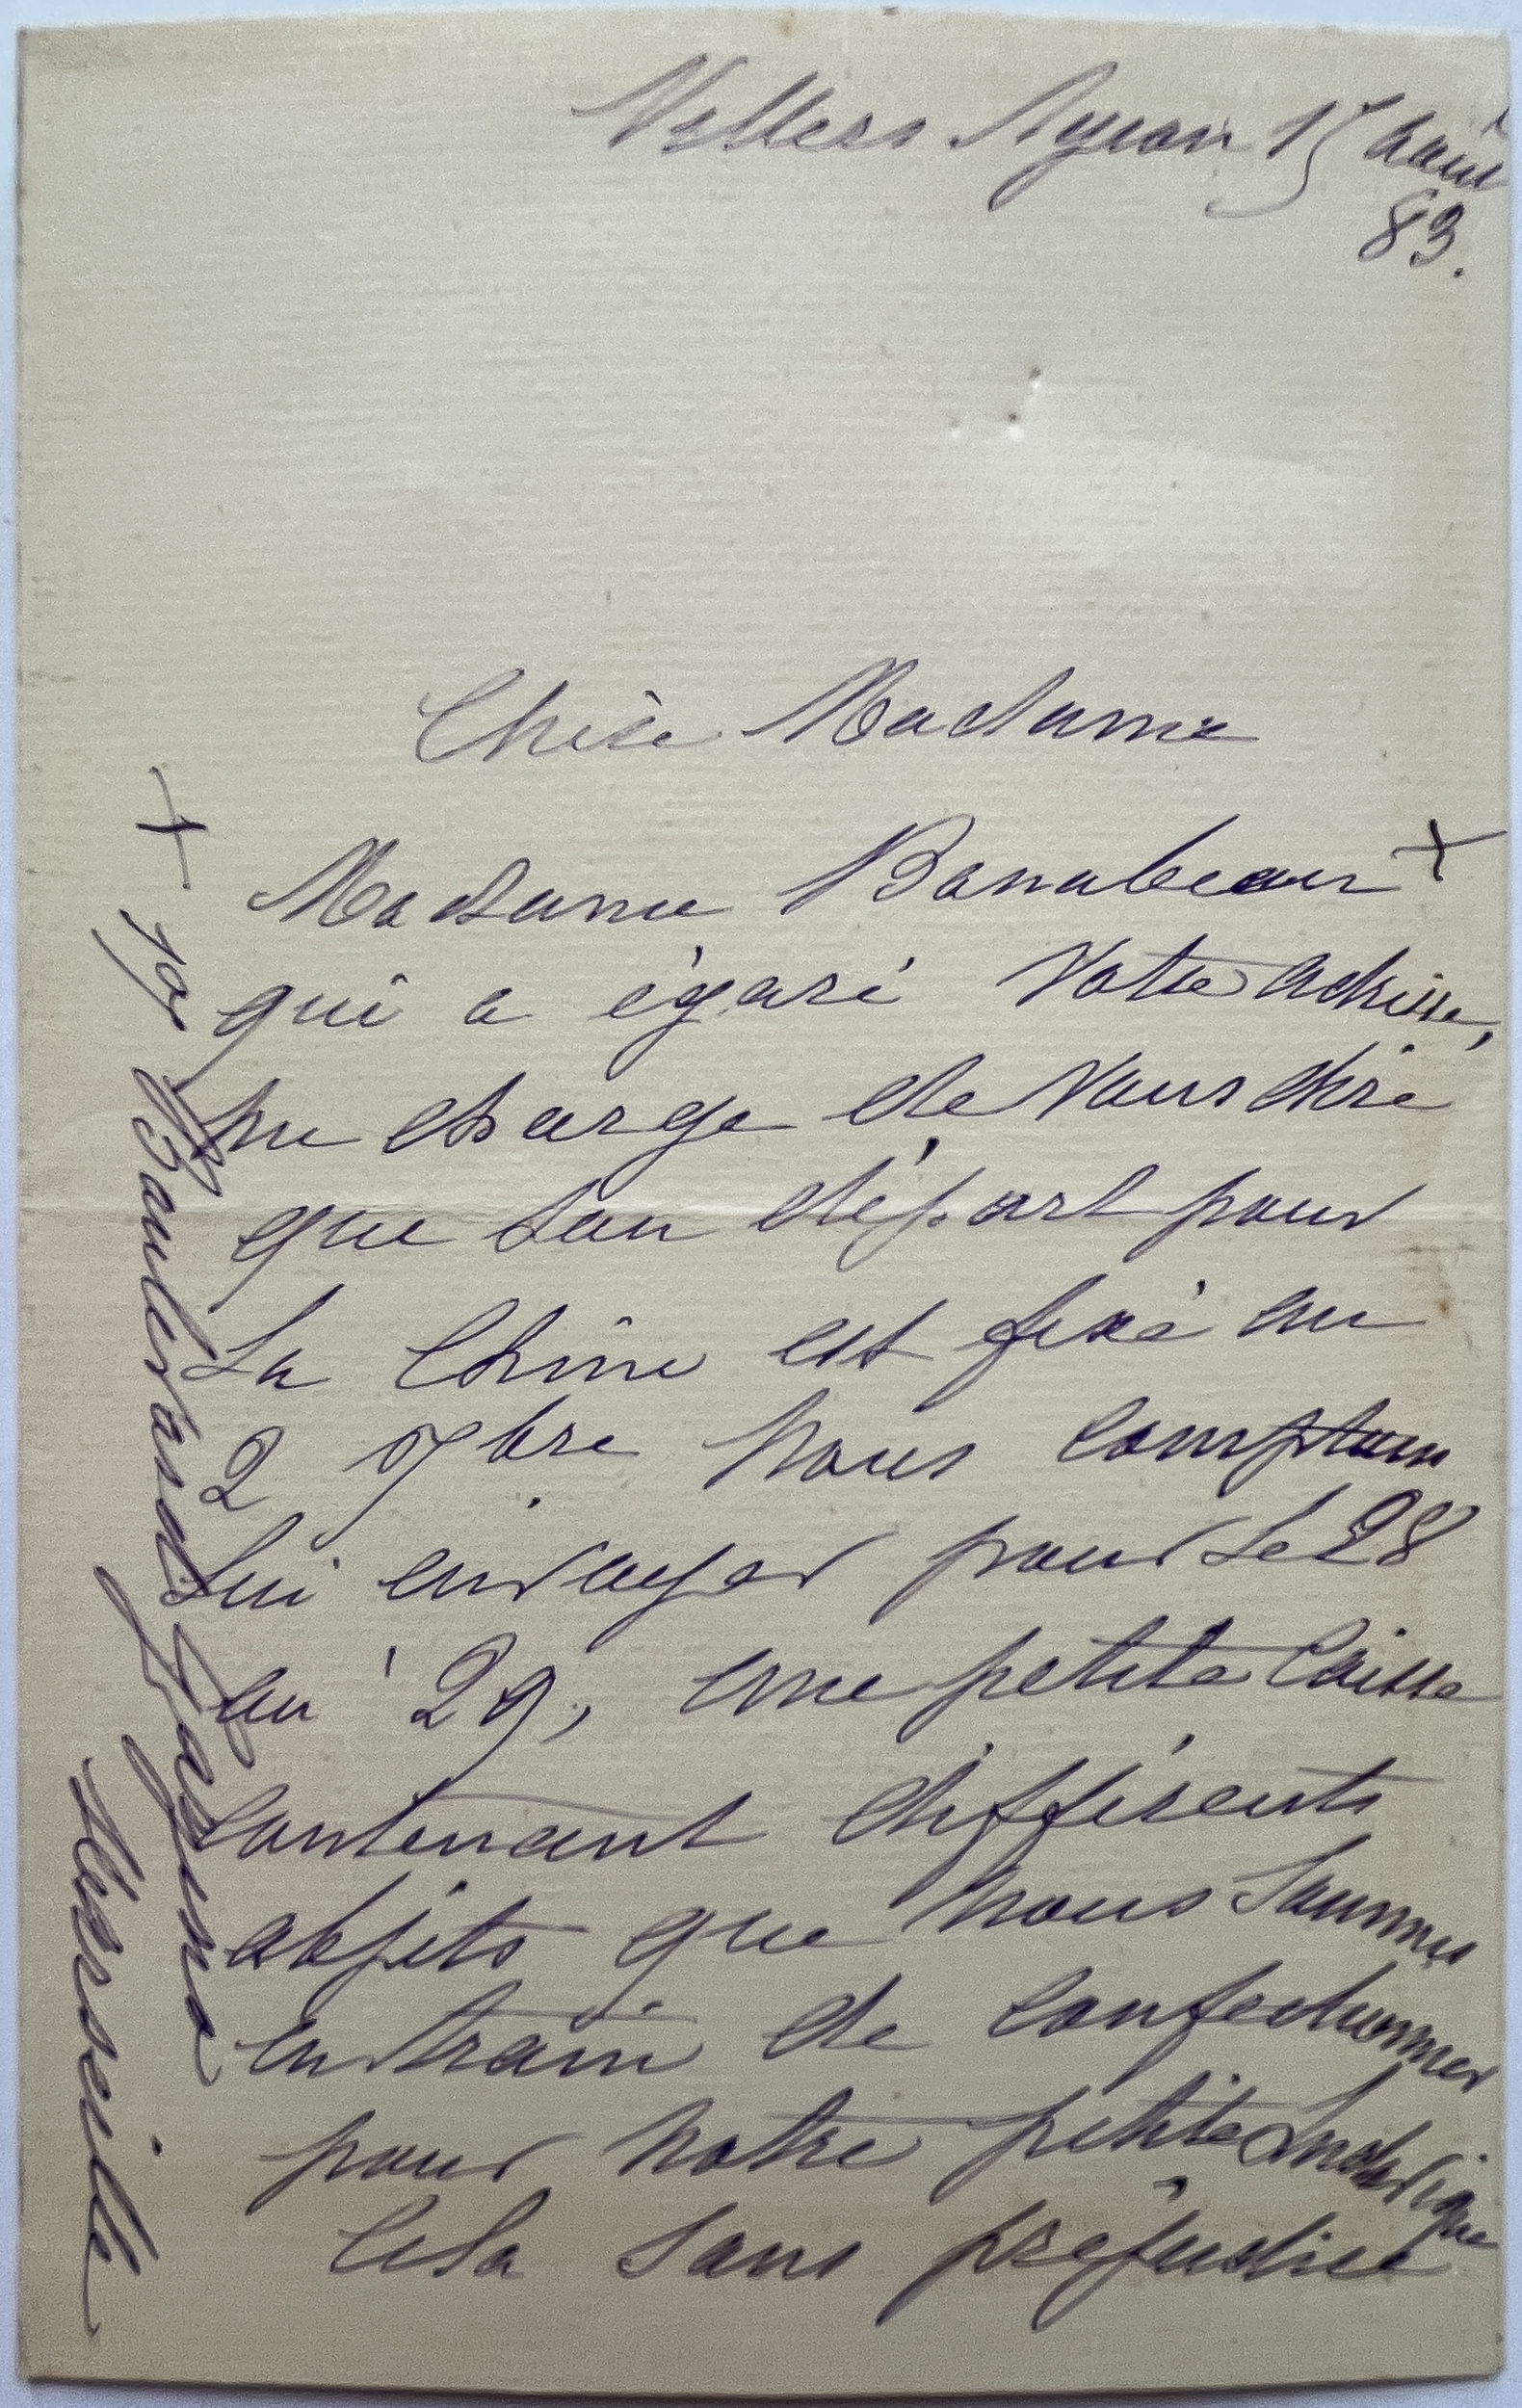 Villers Agron 15 août
83.
Chère Madame
Madame Bonnabeau +
qui a égaré votre adresse,
me charge de vous dire
que son départ pour
la Chine est fixé au
2 7bre. Nous comptons
lui envoyer pour le 28
au 29, une petite Caisse
contenant différents
objets que nous sommes
en train de confectionner
pour notre petite Ludovique
Cela sans préjudice
+ 19 Boulevard
Marseille